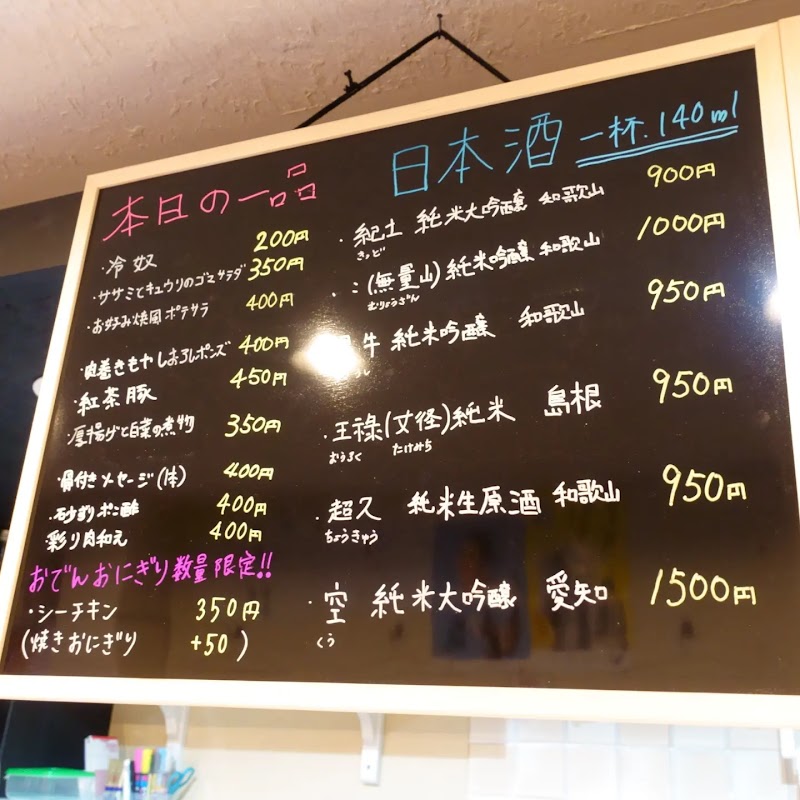 本日の一品
・冷奴 200円
・ササミとキュウリのゴマサラダ 350円
・お好み焼風ポテサラ 400円
・肉巻きもやしおろしポンズ 400円
・紅茶豚 450円
・厚揚げと白菜の煮物 350円
・骨付きソーセージ(1本) 400円
・砂ずりポン酢 400円
・彩り肉和え 400円
おでんおにぎり数量限定!!
・シーチキン 350円
(焼きおにぎり +50)
日本酒 一杯.140ml
・紀土 純米大吟醸 和歌山 900円
きっど
・:(無量山)純米吟醸 和歌山 1000円
むりょうざん
牛 純米吟醸 和歌山 950円
・王祿(丈径)純米 島根 950円
おうろく たけみち
・超久 純米生原酒 和歌山 950円
ちょうきゅう
・空 純米大吟醸 愛知 1500円
くう